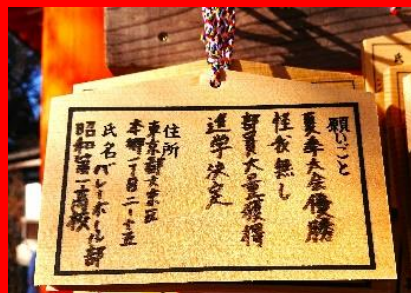 願いごと
夏季大会優勝
怪我無し
部員大量獲得
進学決定
住所
東京都文京区
本郷一丁目二ー十五
氏名 バレーボール部
昭和第一高校